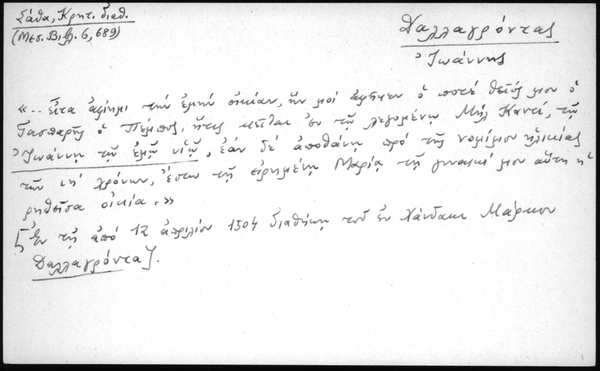 Σάθα, Κρητ. διαθ.
(Μεσ. Β, ς. 6, 689)
Δαλλαγρόντας
Ἰωάννης
«.. εἶτα ἀφίημι τὴν ἐμὴν οἰκίαν, ἣν μοί ἀφῆκεν ὁ ποτέ θεῖός μου ὁ
Γασπαρῆς ὁ Πέμπος, ἥτις κεῖται ἐν τῷ λεγομένῳ Μὴλ Καντέ, τῷ
Ἰωάννῃ τῷ ἐμῷ υἱῷ, ἐάν δέ ἀποθάνῃ πρό τῆς νομίμου ἡλικίας
τῶν ιη' χρόνων, ἔστω τῇ εἰρημένῃ Μαρίᾳ τῇ γυναικί μου αὕτη ἡ
ρηθεῖσα οἰκία.»
[Ἐν τῇ ἀπό 12 ἀπριλίου 1304 διαθήκῃ τοῦ ἐν Χάνδακι Μάρκου
Δαλλαγρόντα].